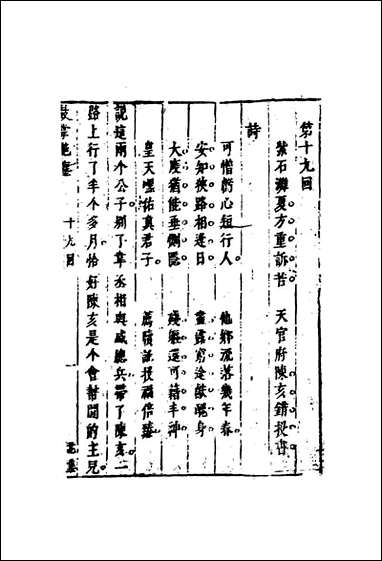 第十九回
紫石灘夏方重訴苦　天官府陳亥錯投書
詩
可惜虧心短行人　他鄉流落幾年春
安知狹路相逢日　盡露窮途獻醜身
大度猶能垂惻隱　殘軀還可藉丰神
皇天嘿佑真君子　薦牘誤投福倍臻
說這兩个公子別了韋丞相與戚總兵帶了陳亥一
路上行了半个多月恰好陳亥是个會幫閒的主兒
十九回
一